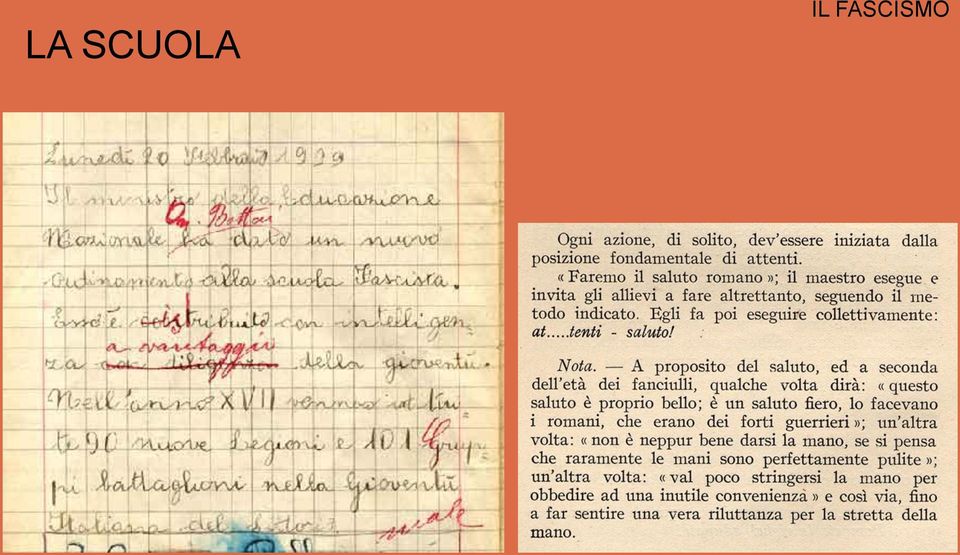 IL FASCISMO
LA SCUOLA
Lunedì 20 Febbraio 1939
Il ministro della Educazione
On. Bottai
Nazionale ha dato un nuovo
Ordinamento alla scuola Fascista.
Esso è distribuito con intelligen-
a vantaggio
za con diligenza della gioventù.
Nell'anno XVII vennero istitui
te 90 nuove Legioni e 101 Grup-
pi battaglioni nella Gioventù
Italiana del Littorio
male
Ogni azione, di solito, dev'essere iniziata dalla
posizione fondamentale di attenti.
«Faremo il saluto romano»; il maestro esegue e
invita gli allievi a fare altrettanto, seguendo il me-
todo indicato. Egli fa poi eseguire collettivamente:
at.....tenti - saluto!
Nota. — A proposito del saluto, ed a seconda
dell'età dei fanciulli, qualche volta dirà: «questo
saluto è proprio bello; è un saluto fiero, lo facevano
i romani, che erano dei forti guerrieri»; un'altra
volta: «non è neppur bene darsi la mano, se si pensa
che raramente le mani sono perfettamente pulite»;
un'altra volta: «val poco stringersi la mano per
obbedire ad una inutile convenienza» e così via, fino
a far sentire una vera riluttanza per la stretta della
mano.